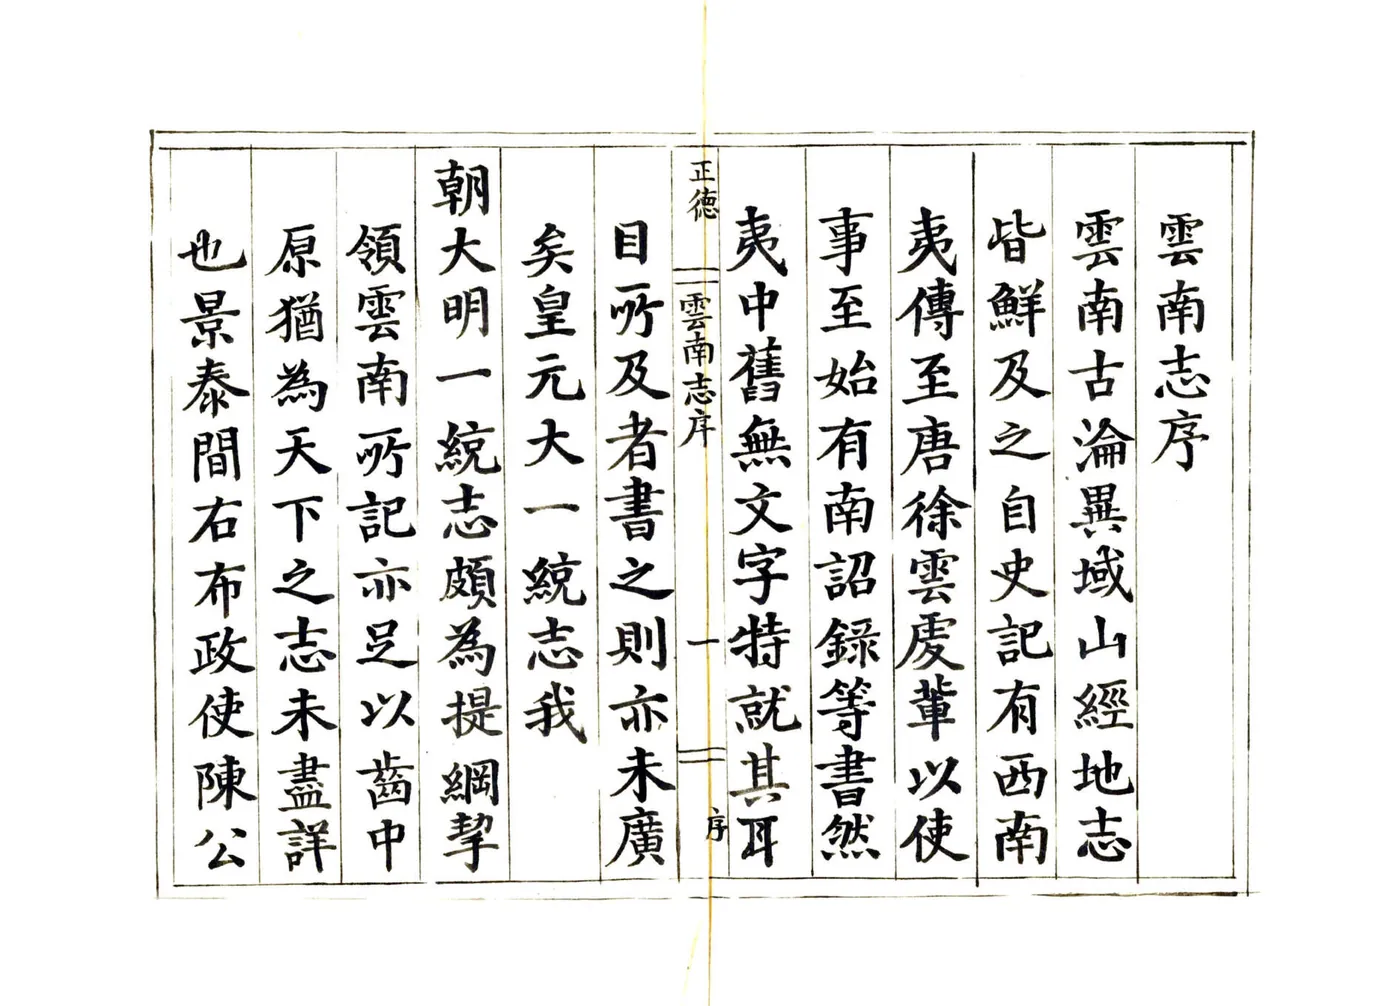 雲南志序
雲南古淪異域山經地志
皆鮮及之自史記有西南
夷傳至唐徐雲虔軰以使
事至始有南詔録等書然
夷中舊無文字特就其耳
正德
雲南志序
一
序
目所及者書之則亦未廣
矣皇元大一統志我
朝大明一統志頗為提綱挈
領雲南所記亦足以齒中
原猶為天下之志未盡詳
也景泰間右布政使陳公